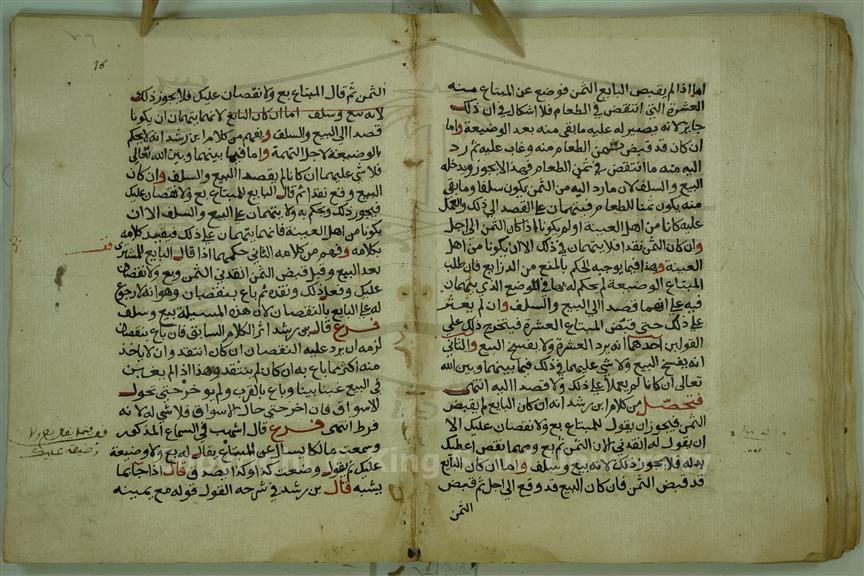 اما اذا لم يقبض البايع الثمن فوضع عن المبتاع منه
العشرة التي انتقض في الطعام فلا اشكال في ان ذلك
جايز لانه يصير له عليه ما بقي منه بعد الوضيعة واما
ان كان قد قبض ثمن الطعام منه وغاب عليه ثم رد
اليه منه ما انتقض في ثمن الطعام فهذا لايجوز ويدخله
البيع والسلف لان ما رد اليه من الثمن يكون سلفا وما بقي
منه يكون ثمنا للطعام فيتهمان على القصد الي ذلك والعمل
عليه كانا من اهل العينة او لم يكونا اذا كان الثمن الي اجل
وان كان الثمن نقدا فلا يتهمان في ذلك الا ان يكونا من اهل
العينة وهذا فيما يوجبه لحكم بالمنع من الذرايع فان طلب
المبتاع الوضيعة لم يحكم له بها في الموضع الذي يتهمان
فيه على انهما قصدا الي البيع والسلف وان لم يعثر
على ذلك حتي قبض المبتاع العشرة فيتخرج ذلك علي
القولين احدهما انه يرد العشرة ولا يفسخ البيع والثاني
انه يفسخ البيع ولا شي عليهما في ذلك فيما بينهما وبين الله
تعالى ان كانا لم يعملا على ذلك ولا قصدا اليه انتهى
فتحصل من كلام ابن رشد انه ان كان البايع لم يقبض
الثمن فيجوز ان يقول للمبتاع بع ولا نقصان عليك الا
ان يقول له انقدني الان الثمن ثم بع ومهما نقص اعطيك
بدله فلا يجوز ذلك لانه بيع وسلف واما ان كان البايع
قد قبض الثمن فان كان البيع قد وقع الي اجل ثم قبض
الثمن
الثمن ثم قال المبتاع بع ولا نقصان عليك فلا يجوز ذلك
لانه بيع وسلف اما ان كان البايع لانهما يتهمان ان يكونا
قصدا الي البيع والسلف ويفهم من كلام ابن رشد انه لايحكم
بالوضيعة لاجل التهمة واما فيما بينهما وبين الله تعالى
فلا شي عليهما ان كانا لم يقصدا البيع والسلف وان كان
البيع وقع نقدا ثم قال البايع للمبتاع بع ولا نقصان عليك
فيجوز ذلك ويحكم به ولا يتهمان على البيع والسلف الا ان
يكونا من اهل العينة فانهما يتهمان على ذلك فيقيد كلامه
بكلامه وفهم من كلامه الثاني حكم ما اذا قال البايع للمشتري
بعد البيع وقبل قبض الثمن انقدني الثمن وبع ولا نقصان
عليك وفعل ذلك ونقده ثم باع بنقصان وهو انه لا رجوع
له على البايع بالنقصان لان هذه المسيلة بيع وسلف
فرع قال بن رشد اثر الكلام السابق فان باع بنقصان
لزمه ان يرد عليه النقصان ان كان انتقد وان لا ياخذ
منه اكثر مما باع به ان كان لم ينتقد وهذا اذا لم يغبن
في البيع غبنا بينا وباع بالقرب ولم يوخر حتي تحول
الاسواق فان اخر حتي حالت الاسواق فلا شي له لانه
فرط انتهى فرع قال اشهب في السماع المذكور
وسمعت مالكا يسال عن المبتاع يقال له بع ولا وضيعة
عليك ثم يقول وضعت كذا وكذا ايصدق قال اذا جا بما
يشبه قال بن رشد في شرحه القول قوله مع يمينه